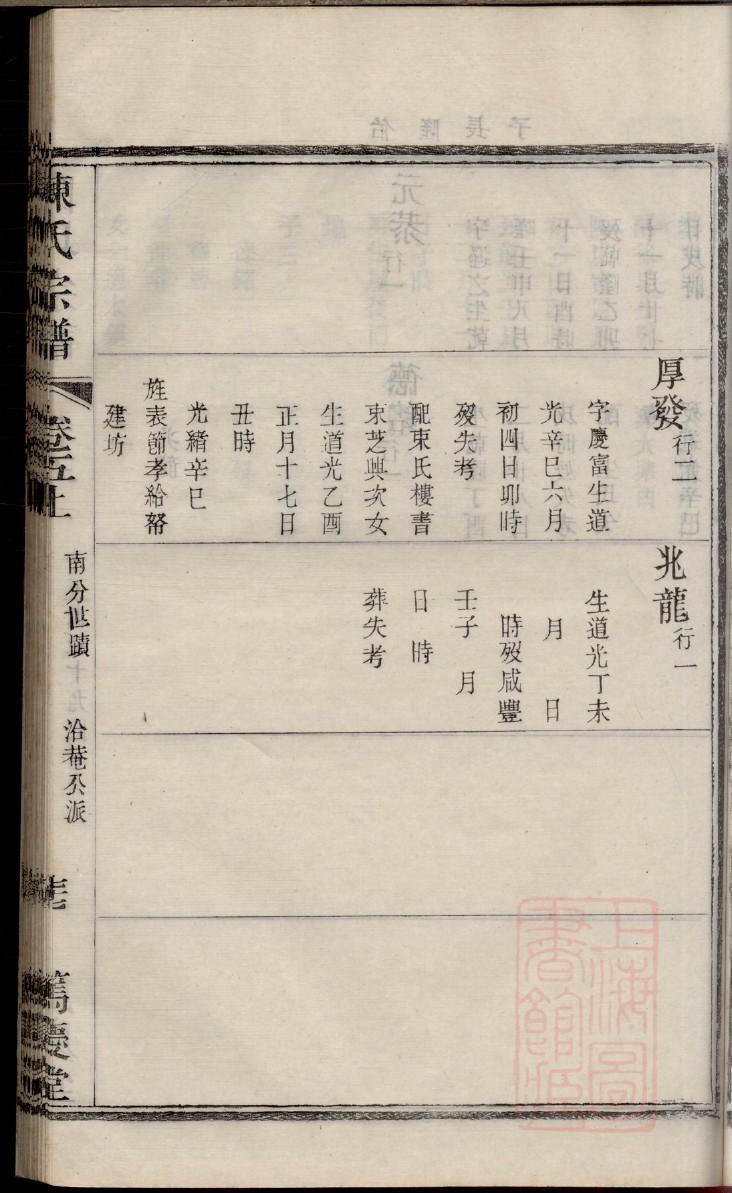 厚發行二
字慶富生道
光辛巳六月
初四日卯時
歿失考
配束氏樓書
束芝興次女
生道光乙酉
正月十七日
丑時
光緒辛巳
旌表節孝給帑
建坊
兆龍行一
生道光丁未
月 日
時歿咸豐
壬子 月
日 時
葬失考
陳氏宗譜
卷五上
南分世蹟
洽菴公派
篤慶堂
上海圖書館藏